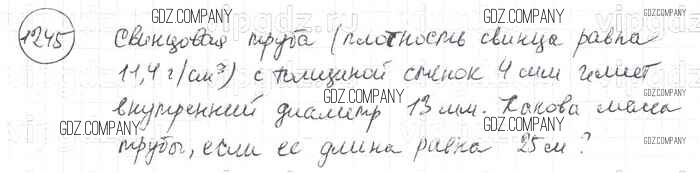 GDZ.COMPANY GDZ.COMPANY
1245 Свинцовая труба (плотность свинца равна
11,4 г/см³) с толщиной стенок 4 мм имеет
GDZ.COMPANY GDZ.COMPANY
внутренний диаметр 13 мм. Какова масса
GDZ.COMPANY GDZ.COMPANY
трубы, если её длина равна 25 м?
GDZ.COMPANY